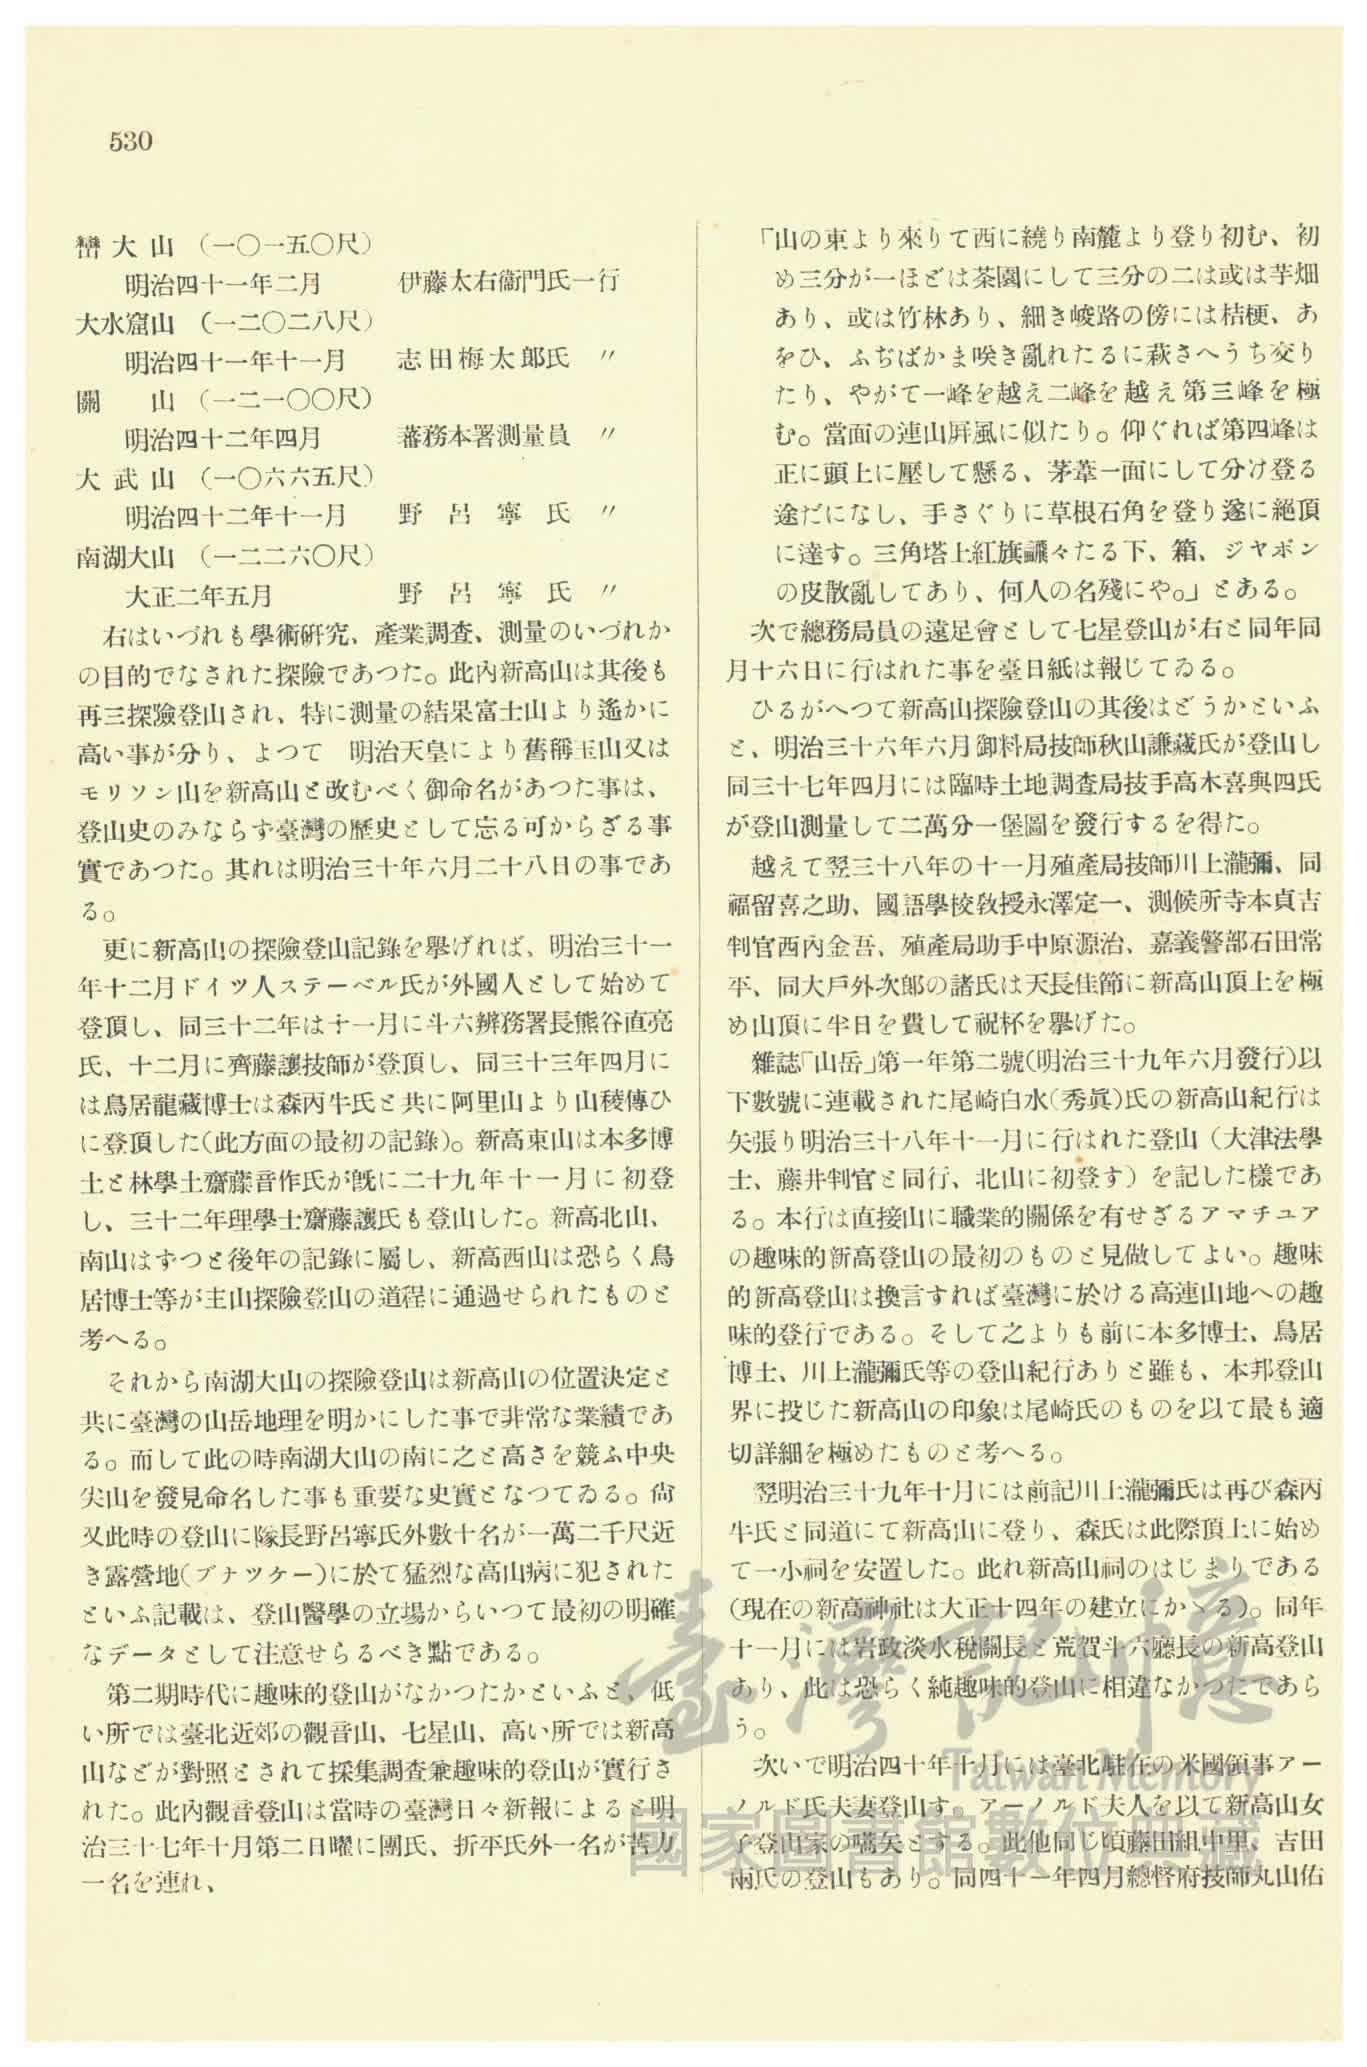 530
巒大山 (一〇一五〇尺)
明治四十一年二月 伊藤太右衞門氏一行
大水窟山 (一二〇二八尺)
明治四十一年十一月 志田梅太郎氏 〃
關山 (一二一〇〇尺)
明治四十二年四月 蕃務本署測量員 〃
大武山 (一〇六六五尺)
明治四十二年十一月 野呂寧氏 〃
南湖大山 (一二二六〇尺)
大正二年五月 野呂寧氏 〃
右はいづれも學術硏究、產業調査、測量のいづれか
の目的でなされた探險であつた。此內新高山は其後も
再三探險登山され、特に測量の結果富士山より遙かに
高い事が分り、よつて 明治天皇により舊稱玉山又は
モリソン山を新高山と改むべく御命名があつた事は、
登山史のみならず臺灣の歷史として忘る可からざる事
實であつた。其れは明治三十年六月二十八日の事であ
る。
更に新高山の探險登山記錄を擧げれば、明治三十一
年十二月ドイツ人ステーベル氏が外國人として始めて
登頂し、同三十二年は十一月に斗六辨務署長熊谷直亮
氏、十二月に齊藤讓技師が登頂し、同三十三年四月に
は鳥居龍藏博士は森丙牛氏と共に阿里山より山稜傳ひ
に登頂した(此方面の最初の記錄)。新高東山は本多博
士と林學士齋藤音作氏が旣に二十九年十一月に初登
し、三十二年理學士齋藤讓氏も登山した。新高北山、
南山はずつと後年の記錄に屬し、新高西山は恐らく鳥
居博士等が主山探險登山の道程に通過せられたものと
考へる。
それから南湖大山の探險登山は新高山の位置決定と
共に臺灣の山岳地理を明かにした事で非常な業績であ
る。而して此の時南湖大山の南に之と高さを競ふ中央
尖山を發見命名した事も重要な史實となつてゐる。尙
又此時の登山に隊長野呂寧氏外數十名が一萬二千尺近
き露營地(ブナツケー)に於て猛烈な高山病に犯された
といふ記載は、登山醫學の立場からいつて最初の明確
なデータとして注意せらるべき點である。
第二期時代に趣味的登山がなかつたかといふと、低
い所では臺北近郊の觀音山、七星山、高い所では新高
山などが對照とされて採集調査兼趣味的登山が實行さ
れた。此內觀音登山は當時の臺灣日々新報によると明
治三十七年十月第二日曜に團氏、折平氏外一名が苦力
一名を連れ、
「山の東より來りて西に繞り南麓より登り初む、初
め三分が一ほどは茶園にして三分の二は或は芋畑
あり、或は竹林あり、細き峻路の傍には桔梗、あ
をひ、ふぢばかま咲き亂れたるに萩さへうち交り
たり、やがて一峰を越え二峰を越え第三峰を極
む。當面の連山屛風に似たり。仰ぐれば第四峰は
正に頭上に壓して懸る、茅葦一面にして分け登る
途だになし、手さぐりに草根石角を登り遂に絕頂
に達す。三角塔上紅旗飜々たる下、箱、ジヤボン
の皮散亂してあり、何人の名殘にや。」とある。
次で總務局員の遠足會として七星登山が右と同年同
月十六日に行はれた事を臺日紙は報じてゐる。
ひるがへつて新高山探險登山の其後はどうかといふ
と、明治三十六年六月御料局技師秋山謙藏氏が登山し
同三十七年四月には臨時土地調査局技手高木喜與四氏
が登山測量して二萬分一堡圖を發行するを得た。
越えて翌三十八年の十一月殖產局技師川上瀧彌、同
福留喜之助、國語學校敎授永澤定一、測候所寺本貞吉
判官西內金吾、殖產局助手中原源治、嘉義警部石田常
平、同大戶外次郞の諸氏は天長佳節に新高山頂上を極
め山頂に半日を費して祝杯を擧げた。
雜誌「山岳」第一年第二號(明治三十九年六月發行)以
下數號に連載された尾崎白水(秀眞)氏の新高山紀行は
矢張り明治三十八年十一月に行はれた登山(大津法學
士、藤井判官と同行、北山に初登す)を記した樣であ
る。本行は直接山に職業的關係を有せざるアマチユア
の趣味的新高登山の最初のものと見做してよい。趣味
的新高登山は換言すれば臺灣に於ける高連山地への趣
味的登行である。そして之よりも前に本多博士、鳥居
博士、川上瀧彌氏等の登山紀行ありと雖も、本邦登山
界に投じた新高山の印象は尾崎氏のものを以て最も適
切詳細を極めたものと考へる。
翌明治三十九年十月には前記川上瀧彌氏は再び森丙
牛氏と同道にて新高山に登り、森氏は此際頂上に始め
て一小祠を安置した。此れ新高山祠のはじまりである
(現在の新高神社は大正十四年の建立にかゝる)。同年
十一月には岩政淡水稅關長と荒賀斗六廳長の新高登山
あり、此は恐らく純趣味的登山に相違なかつたであら
う。
次いで明治四十年十月には臺北駐在の米國領事アー
ノルド氏夫妻登山す。アーノルド夫人を以て新高山女
子登山家の嚆矢とする。此他同じ頃藤田組中里、吉田
兩氏の登山もあり。同四十一年四月總督府技師丸山佑
臺灣記憶
Taiwan Memory
國家圖書館數位典藏